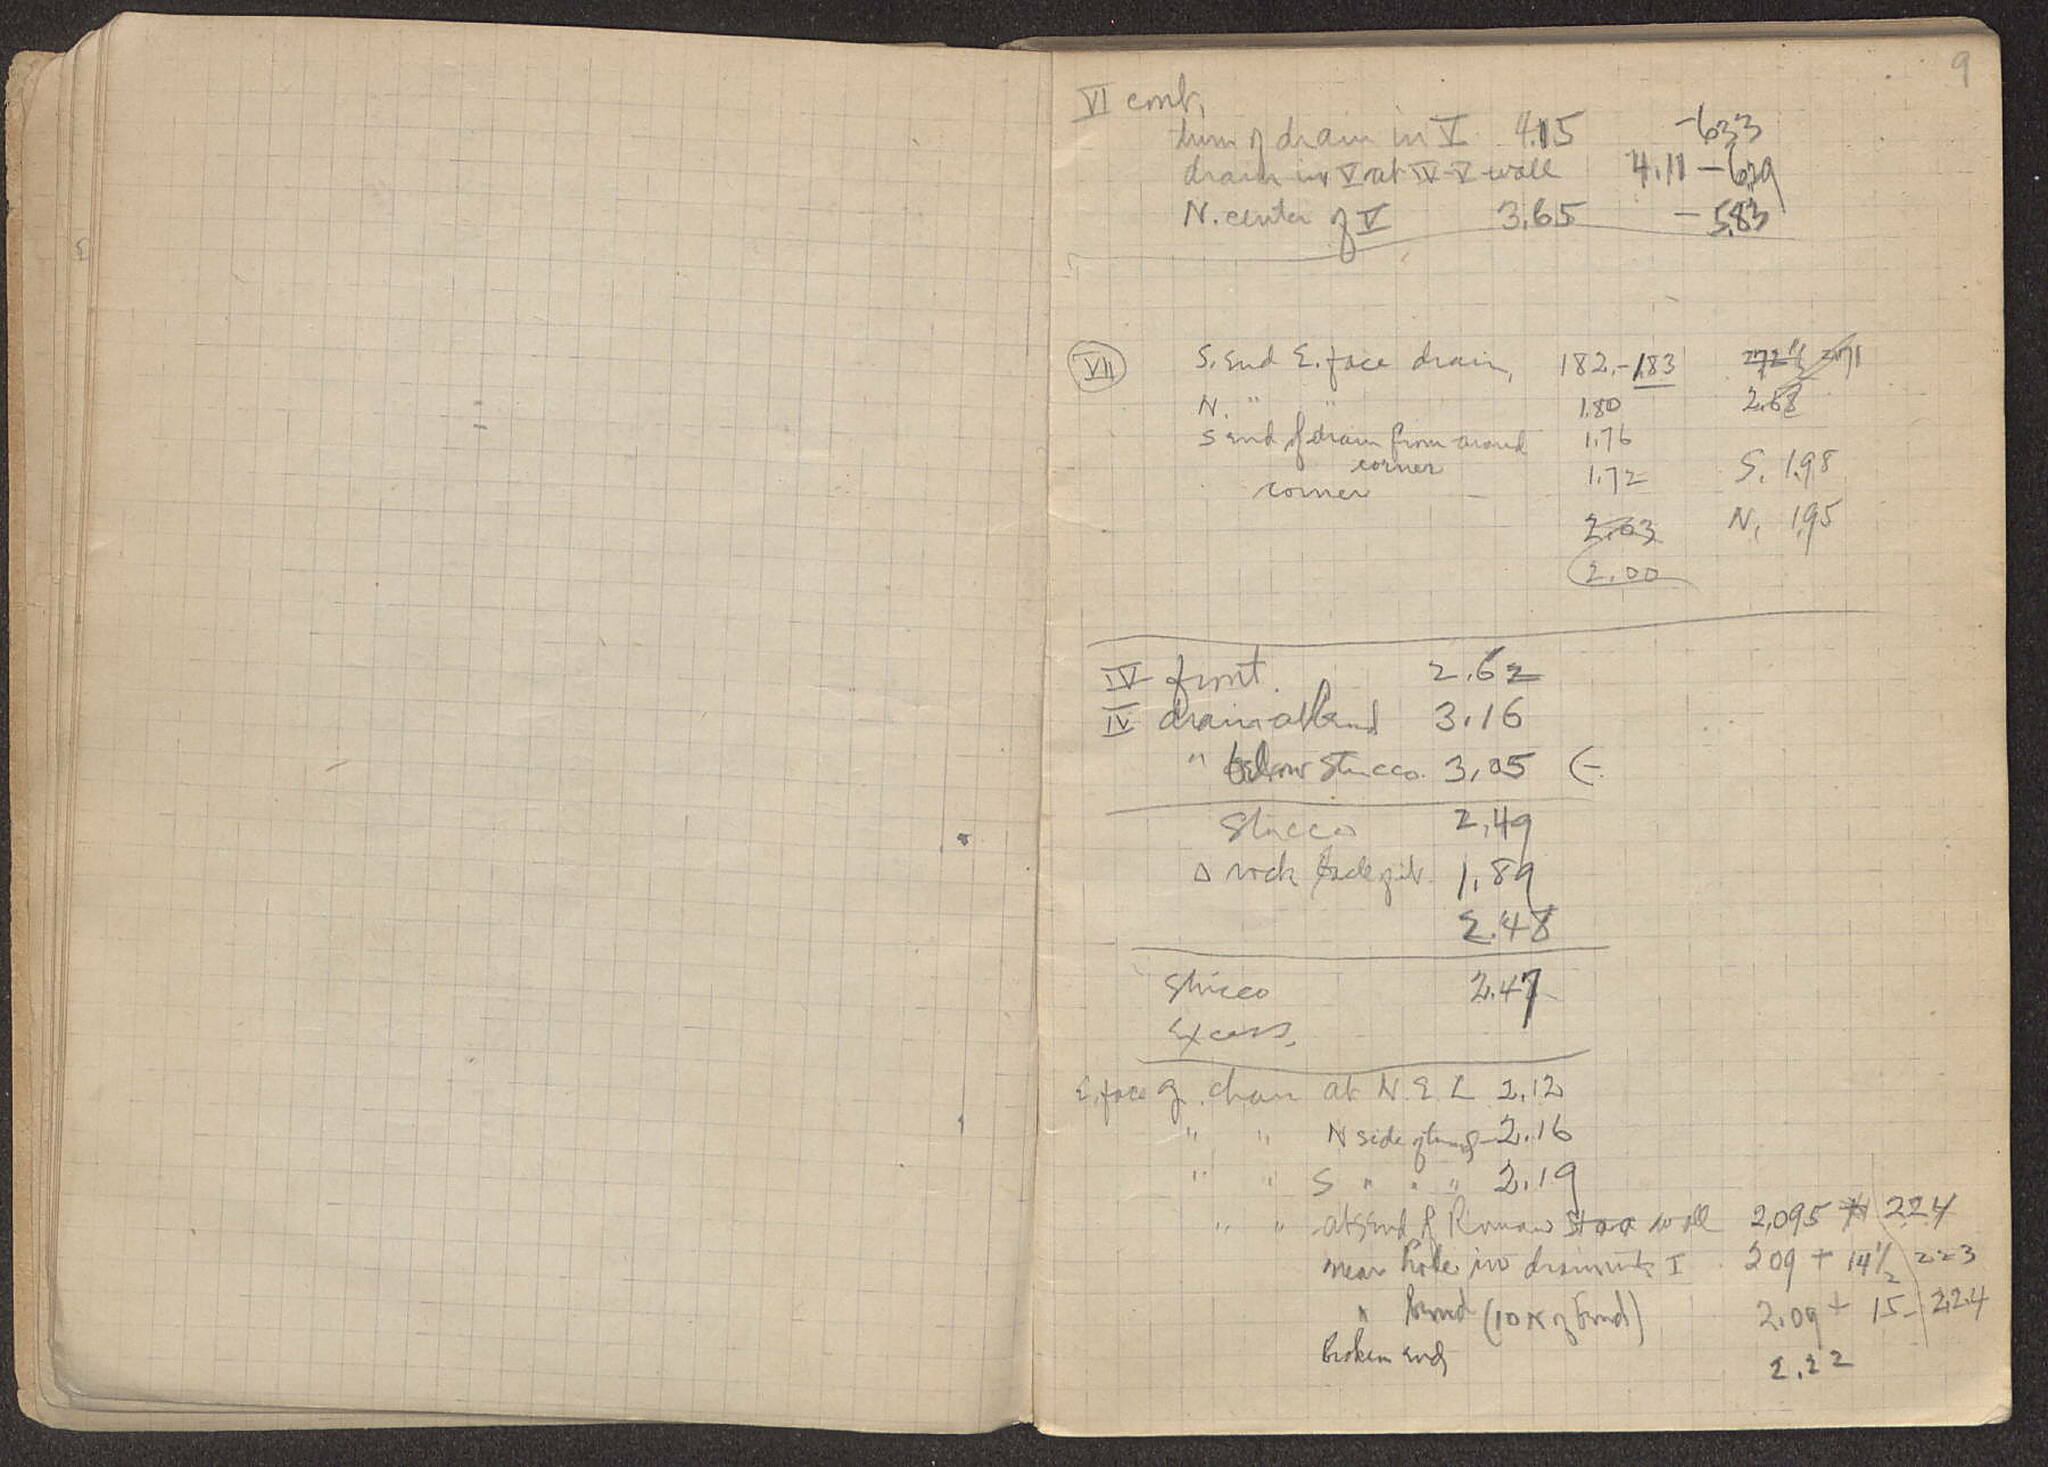 9
VI cont.
turn of drain in V 4.15 -633
drain in V at IV-V wall 4.11 - 629
N. center of V 3.65 - 5.83
VII S. End E. face drain, 182.-1.83 2.71
N. " " 1.80 2.68
S end of drain from around 1.76
corner 1.72 S. 1.98
corner
2.03 N. 1.95
2.00
IV front. 2.62
IV drain at bend 3.16
" below stucco. 3.05 (-.
Stucco 2.49
Δ rock 1.89
2.48
Stucco 2.47
Excess.
E. face of chan at N.E. 2.12
" " N side of 2.16
" " S " " " 2.19
" " at S end of Roman wall 2.095 224
near hole in I 209 + 14½ 223
" bend (10 N of bend) 2.09 + 15 - 2.24
broken end 2.22